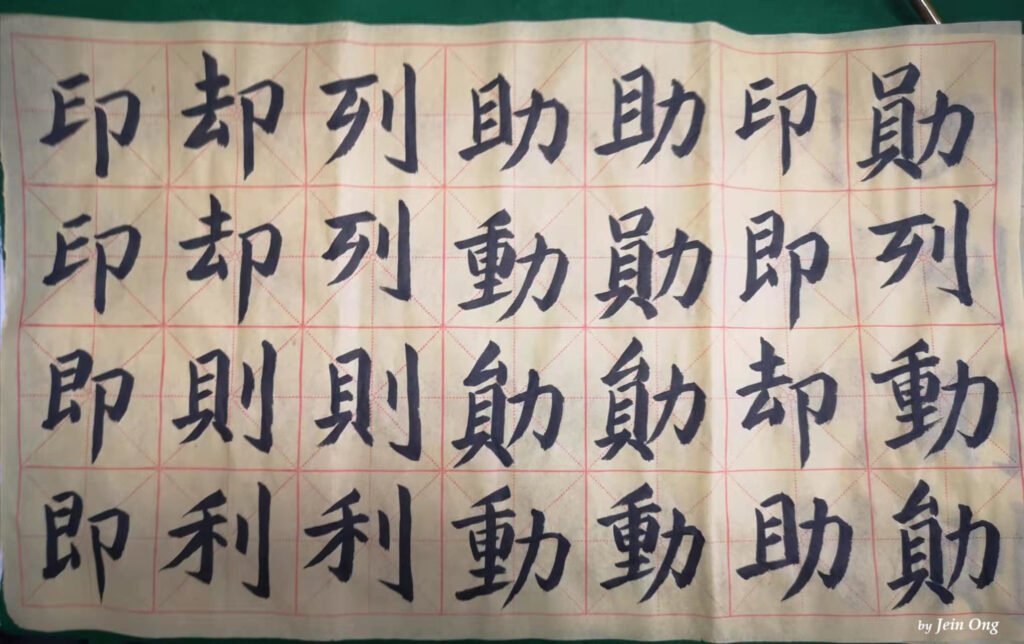 印却列助助印勛
印却列動勛即列
即則則勛勛却動
即利利動動助勛
by Jein Ong